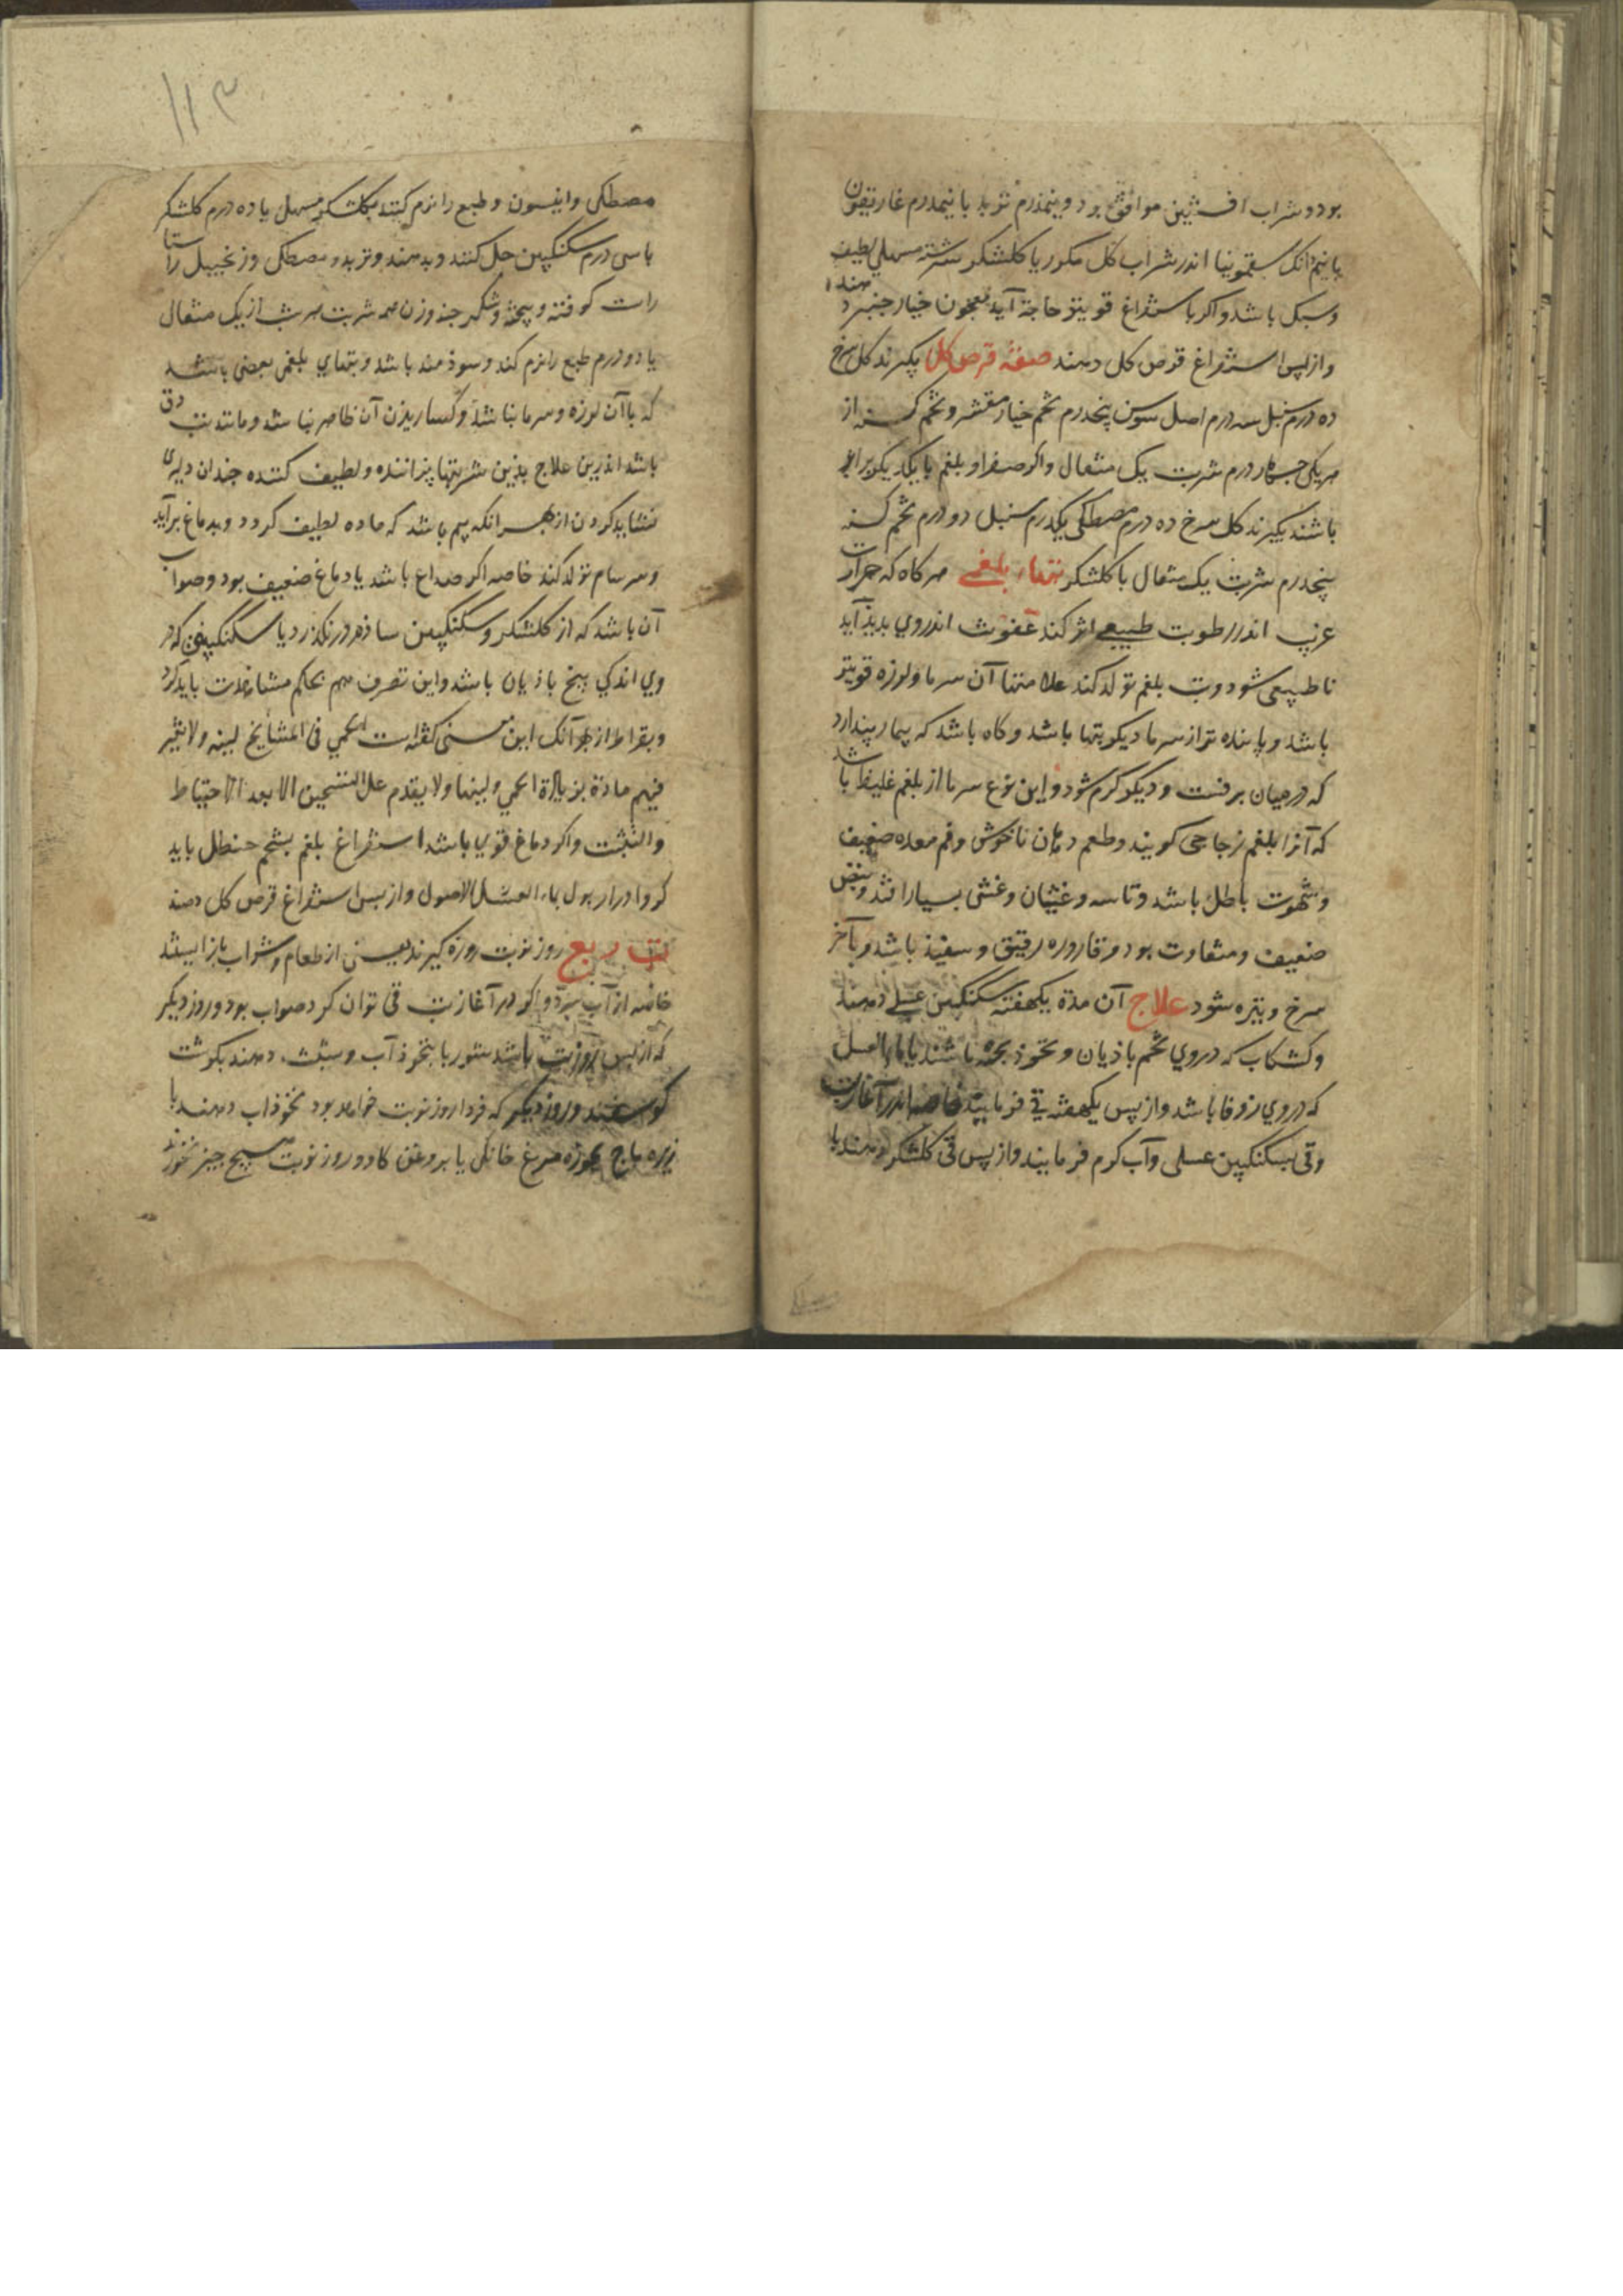 بود و شراب افسنتین موافق بود و نیمدرم تربد با نیمدرم غاریقون
یا نیم دانک سقمونیا اندر شراب کل مکرر یا کلشکر سرشته مسهلی لطیف
و سبک باشد و اکر باستفراغ قویتر حاجة آید معجون خیار جنبر دهند
و از پس استفراغ قرص کل دهند صفة قرص کل بکیرند کل سرخ
ده درم سنبل سه درم اصل سوس پنجدرم تخم خیار مقشر و تخم کسنه از
هر یکی جهار درم شربت یک مثقال و اکر صفرا و بلغم با یکدیکر برابر
باشند بکیرند کل سرخ ده درم مصطکی یکدرم سنبل دو درم تخم کسنه
پنجدرم شربت یک مثقال با کلشکر تبهاء بلغمی هر کاه که حرارت
غریب اندر رطوبت طبیعی اثر کند عفونت اندر وی بدیذ آید
نا طبیعی شود و تب بلغم تولد کند علامتها آن سرما و لرزه قویتر
باشد و پاینده تر از سرما دیکر تبها باشد و کاه باشد که بیمار پندارد
که در میان برفست و دیکر کرم شود و این نوع سرما از بلغم غلیظ باشد
که آنرا بلغم زجاجی کویند و طعم دهان ناخوش و فم معده ضعیف
و شهوت باطل باشد و تاسه و غثیان و غشی بسیار افتد و نبض
ضعیف و متفاوت بود و قاروره رقیق و سفیذ باشد و بآخر
سرخ و تیره شود علاج آن مدة یکهفته سکنکبین عسلی دهند
و کشکاب که در وی تخم باذیان و نخوذ بخته باشند یا ماء العسل
که در وی زوفا باشد و از پس یکهفته قی فرمایند خاصه اندر آغاز تب
و قی بسکنکبین عسلی و آب کرم فرمایند و از پس قی کلشکر دهند با
۱۱۳
مصطکی و انیسون و طبع را نرم کنند بکلشکر مسهل یا ده درم کلشکر
با سی درم سکنکبین حل کنند و بدهند و تربد و مصطکی و زنجبیل راستا
راست کوفته و بیخته و شکر جند وزن همه شربت هر شب از یک مثقال
یا دو درم طبع را نرم کند و سوذمند باشد و تبهای بلغمی بعضی باشد
که با آن لرزه و سرما نباشد و کساریدن آن ظاهر نباشد و مانند تب دق
باشد اندرین علاج بذین شربتها پزاننده و لطیف کننده جندان دلیری
نشاید کردن از بهر آنکه بیم باشد که ماده لطیف کردد و بدماغ برآید
و سرسام تولد کند خاصه اکر صداع باشد یا دماغ ضعیف بود و صواب
آن باشد که از کلشکر و سکنکبین ساذه در نکذرد یا سکنکبینی که در
وی اندکی بیخ باذیان باشد و این تصرف هم بحکم مشاهدت باید کرد
و بقراط از بهر آنک این کفته است الحمی فی المشایخ لینه و لا یثیر
فیهم مادة بزیادة الحمی و لینها و لا یقدم علی التسخین الا بعد الاحتیاط
و التثبت و اکر دماغ قوی باشد استفراغ بلغم بشحم حنظل باید
کرد و ادرار بول بماء العسل الاصول و از پس استفراغ قرص کل دهند
تب ربع روز نوبت روزه کیرند یعنی از طعام و شراب باز ایستد
خاصه از آب سرد و اکر در آغاز تب قی توان کرد صواب بود و روز دیکر
که از پس روز تب باشد شوربا بنخوذ آب و شبت دهند بکوشت
کوسفند و روز دیکر که فردا روز نوبت خواهد بود نخوذاب دهند یا
زیره باج بجوزه مرغ خانکی یا بروغن کاو و روز نوبت هیچ جیز نخورند